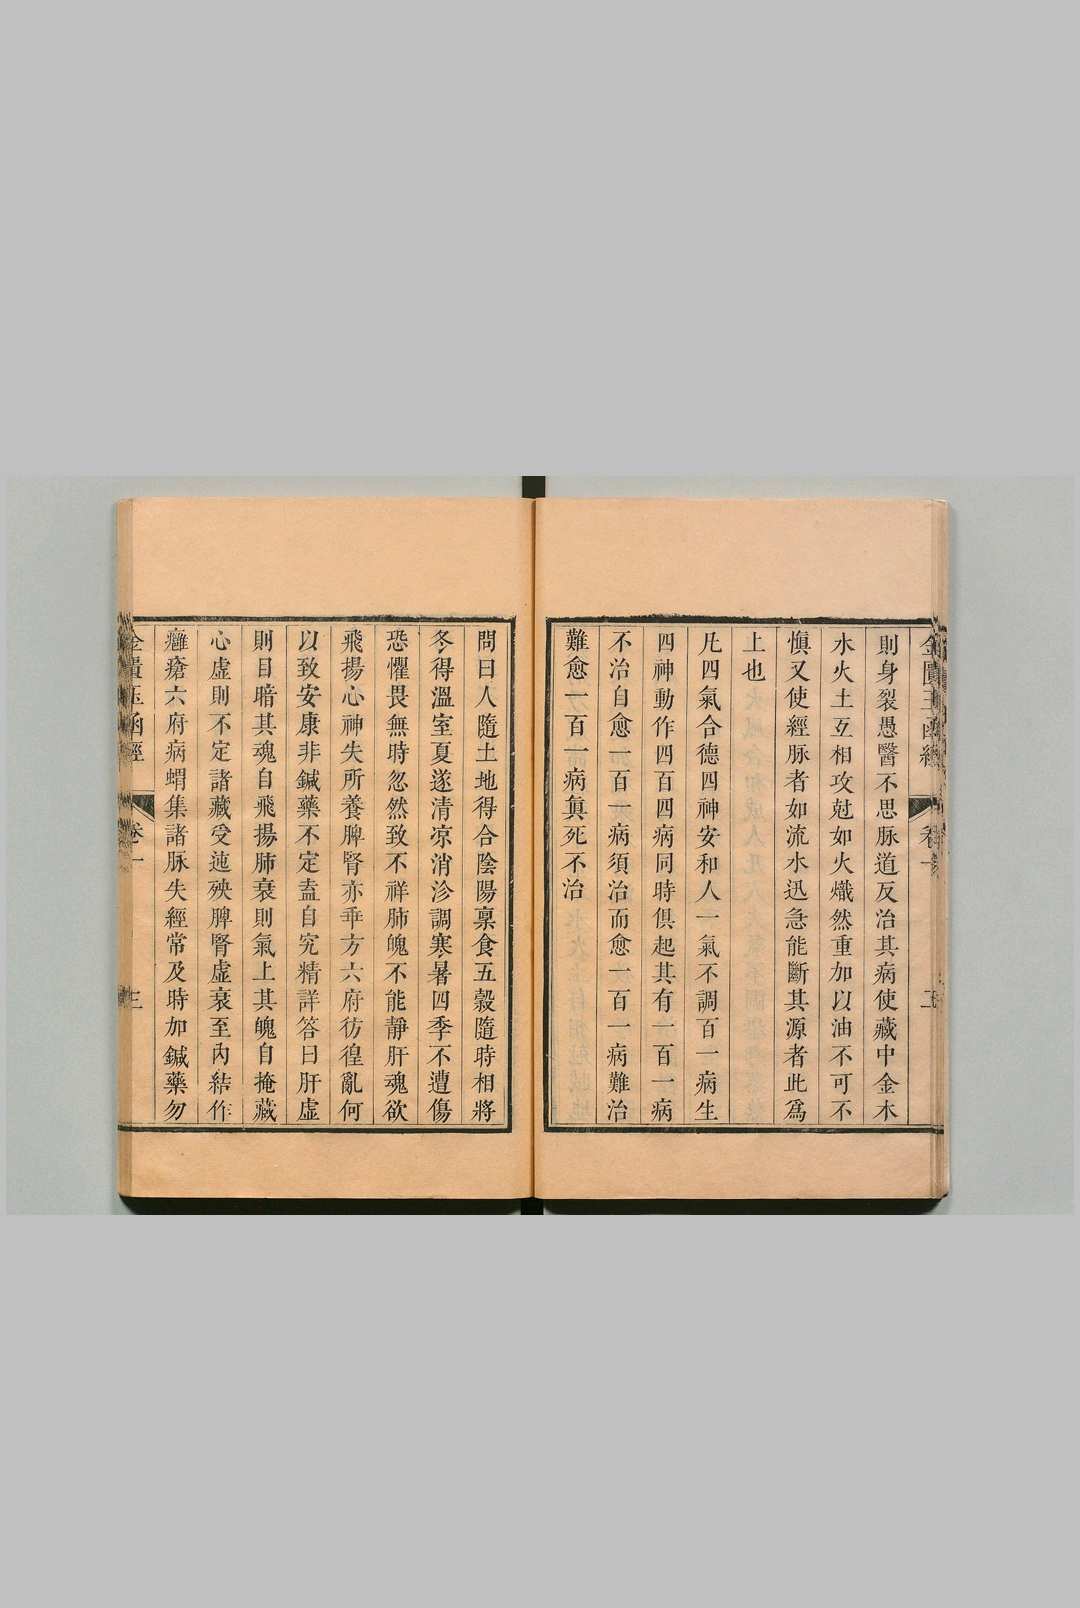 則身裂愚醫不思脉道反治其病使藏中金木
水火土互相攻尅如火熾然重加以油不可不
愼又使經脉者如流水迅急能斷其源者此爲
上也
凡四氣合德四神安和人一氣不調百一病生
四神動作四百四病同時俱起其有一百一病
不治自愈一百一病須治而愈一百一病難治
難愈一百一病眞死不治
問曰人隨土地得合陰陽稟食五穀隨時相將
冬得溫室夏遂清凉消沴調寒暑四季不遭傷
恐懼畏無時忽然致不祥肺魄不能靜肝魂欲
飛揚心神失所養脾腎亦乖方六府彷徨亂何
以致安康非鍼藥不定盍自究精詳答曰肝虛
則目暗其魂自飛揚肺衰則氣上其魄自掩藏
心虛則不定諸藏受迍殃脾腎虛衰至內結作
癰瘡六府病蝟集諸脉失經常及時加鍼藥勿
金匱玉函經 卷一 三